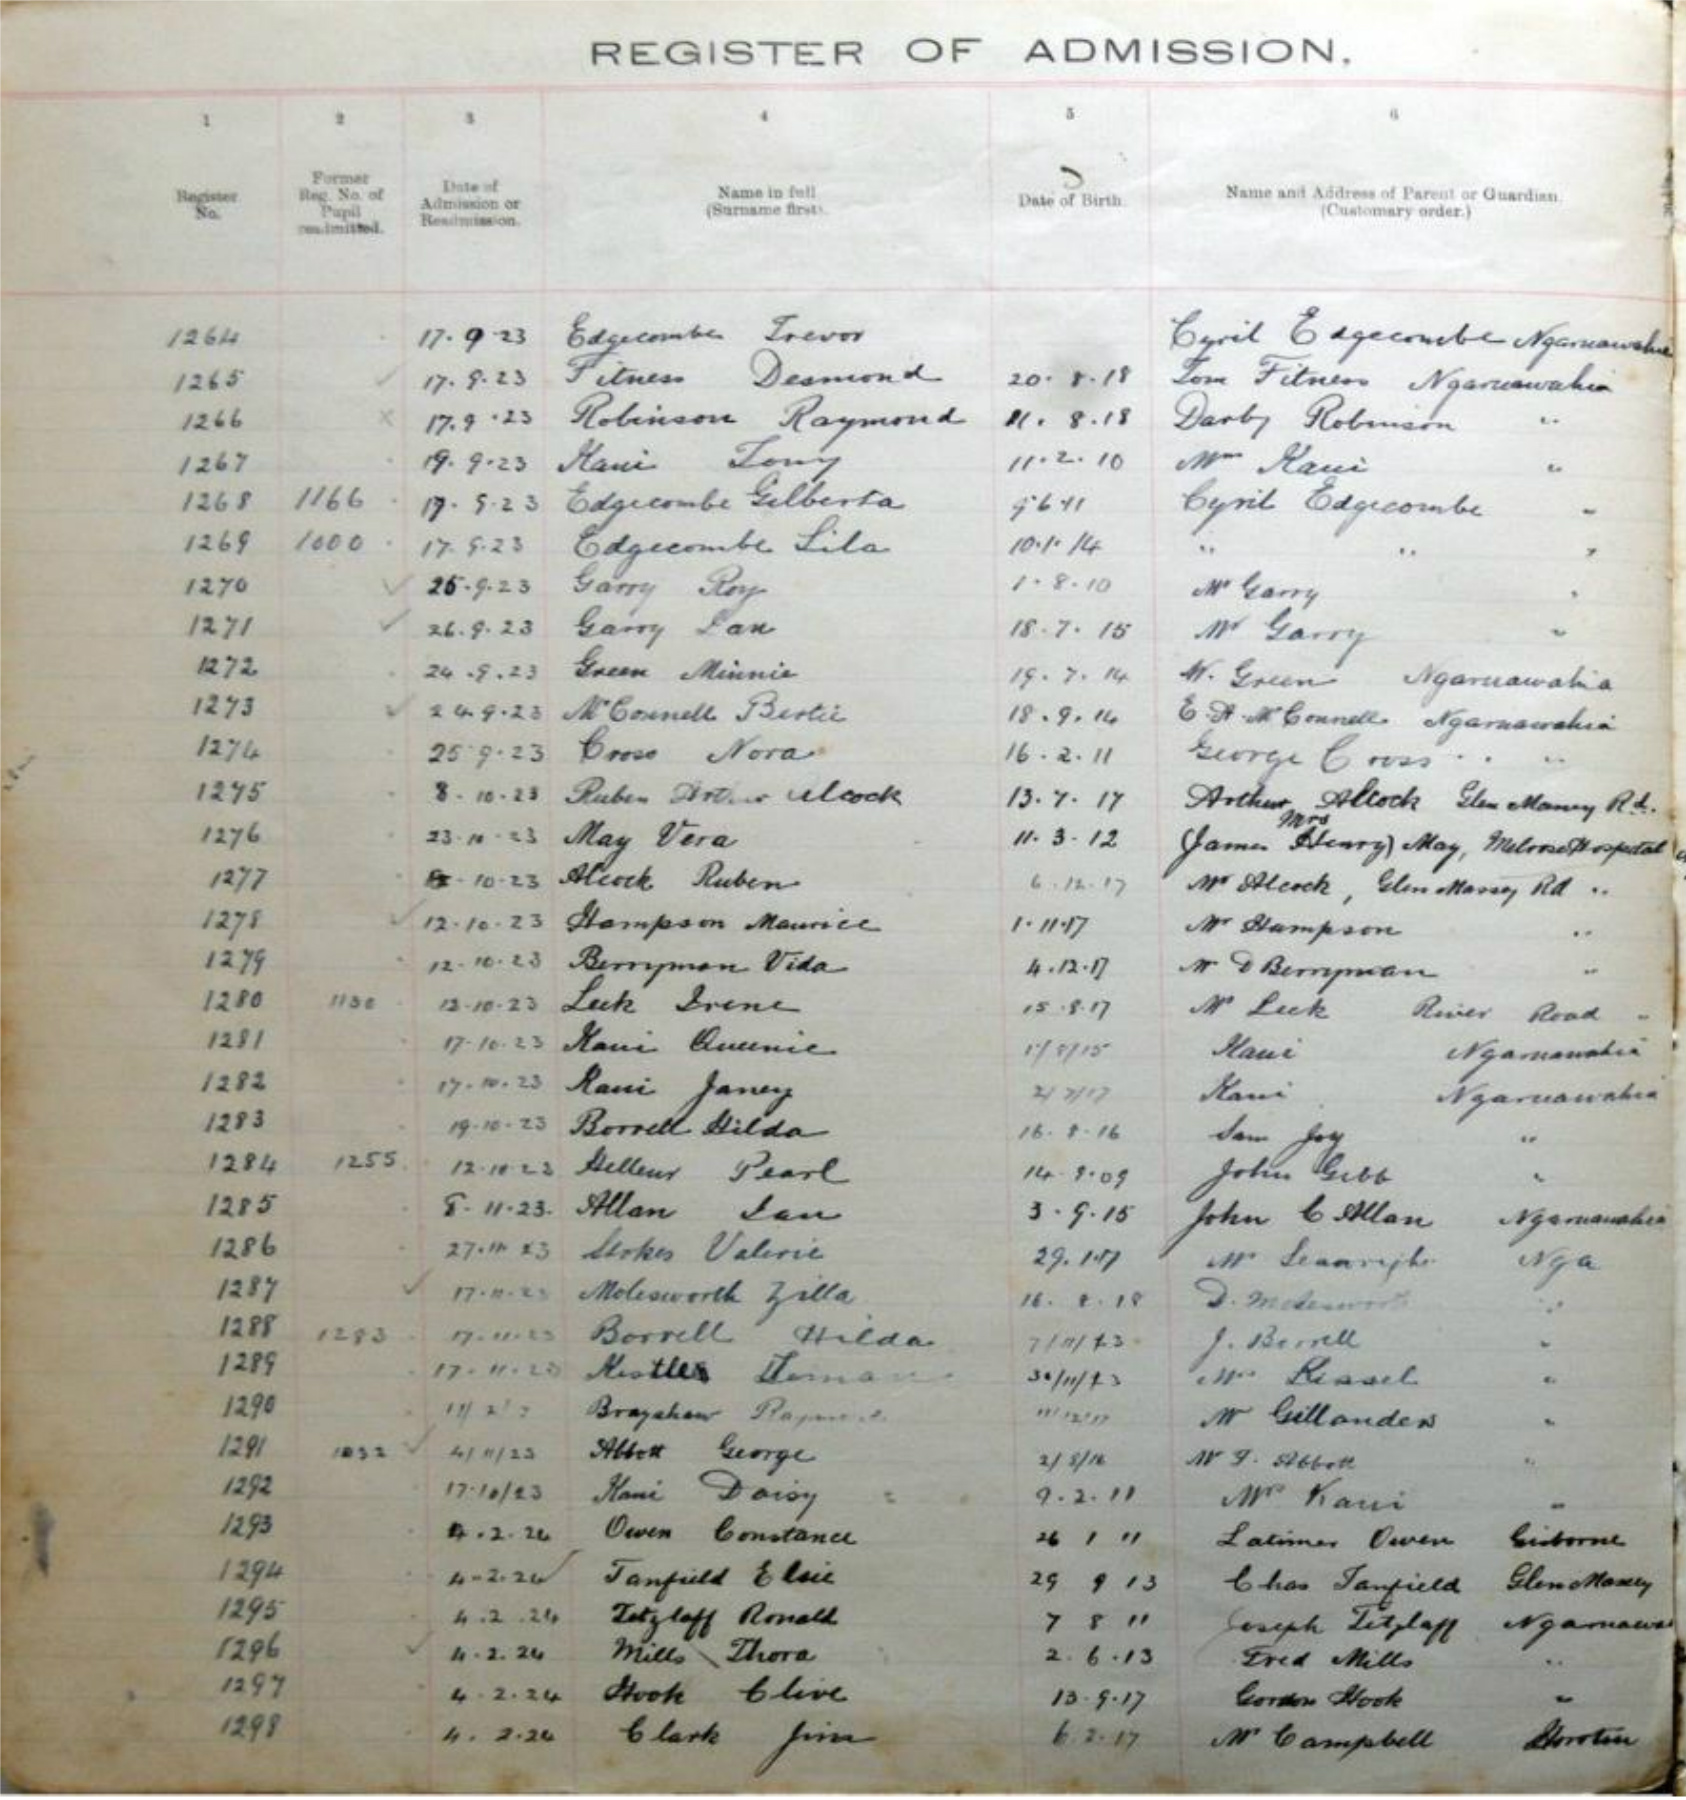 REGISTER OF ADMISSION.
1 2 3 4 5 6
Register No. Former Reg. No. of Pupil readmitted. Date of Admission or Readmission. Name in full (Surname first). Date of Birth. Name and Address of Parent or Guardian (Customary order.)
1264 17.9.23 Edgecombe Trevor Cyril Edgecombe Ngaruawahia
1265 17.9.23 Fitness Desmond 20.8.18 Tom Fitness Ngaruawahia
1266 17.9.23 Robinson Raymond 11.8.18 Darby Robinson "
1267 19.9.23 Kaui Tony 11.2.10 Kaui "
1268 1166 17.9.23 Edgecombe Gilberta 9.6.11 Cyril Edgecombe "
1269 1000 17.9.23 Edgecombe Lila 10.1.14 " " "
1270 25.9.23 Garry Roy 1.8.10 Mr Garry "
1271 26.9.23 Garry Ian 18.7.15 Mr Garry "
1272 24.9.23 Green Minnie 19.7.14 W. Green Ngaruawahia
1273 24.9.23 McConnell Bertie 18.9.14 E. A. McConnell Ngaruawahia
1274 25.9.23 Cross Nora 16.2.11 George Cross " "
1275 8.10.23 Ruben Arthur Alcock 13.7.17 Arthur Alcock Glen Massey Rd.
1276 23.10.23 May Vera 11.3.12 Mrs (James Henry) May, Melrose Hospital
1277 10.23 Alcock Ruben 6.12.17 Mr Alcock, Glen Massey Rd "
1278 12.10.23 Hampson Maurice 1.11.17 Mr Hampson "
1279 12.10.23 Berryman Vida 4.12.17 Mr D Berryman "
1280 1130 12.10.23 Leek Irene 15.8.17 Mr Leek River Road "
1281 17.10.23 Kaui Queenie Kaui Ngaruawahia
1282 17.10.23 Kaui Janey Kaui Ngaruawahia
1283 19.10.23 Borrell Hilda 16.8.16 Sam Joy "
1284 1255 12.10.23 Pearl 14.8.09 John Gibb "
1285 8.11.23 Allan Ian 3.9.15 John C Allan Ngaruawahia
1286 27.11.23 Stokes Valerie 29.1.17 Mr Nga
1287 17.11.23 Molesworth Zilla 16.8.18 D. Molesworth "
1288 1283 17.11.23 Borrell Hilda 7/11/23 J. Borrell "
1289 17.11.23 30/11/23 "
1290 Brayshaw Mr Gillanders "
1291 1032 4/11/23 Abbott George Mr Abbott "
1292 17.10/23 Kaui Daisy 9.2.11 Mrs Kaui "
1293 4.2.24 Owen Constance 26 1 11 Latimer Owen Gisborne
1294 4.2.24 Tanfield Elsie 29 9 13 Chas Tanfield Glen Massey
1295 4.2.24 Titzlaff Ronald 7 8 11 Joseph Titzlaff Ngaruawa
1296 4.2.24 Mills Thora 2.6.13 Fred Mills "
1297 4.2.24 Hook Clive 13.9.17 Gordon Hook "
1298 4.2.24 Clark Jim 6.2.17 Mr Campbell Horotiu